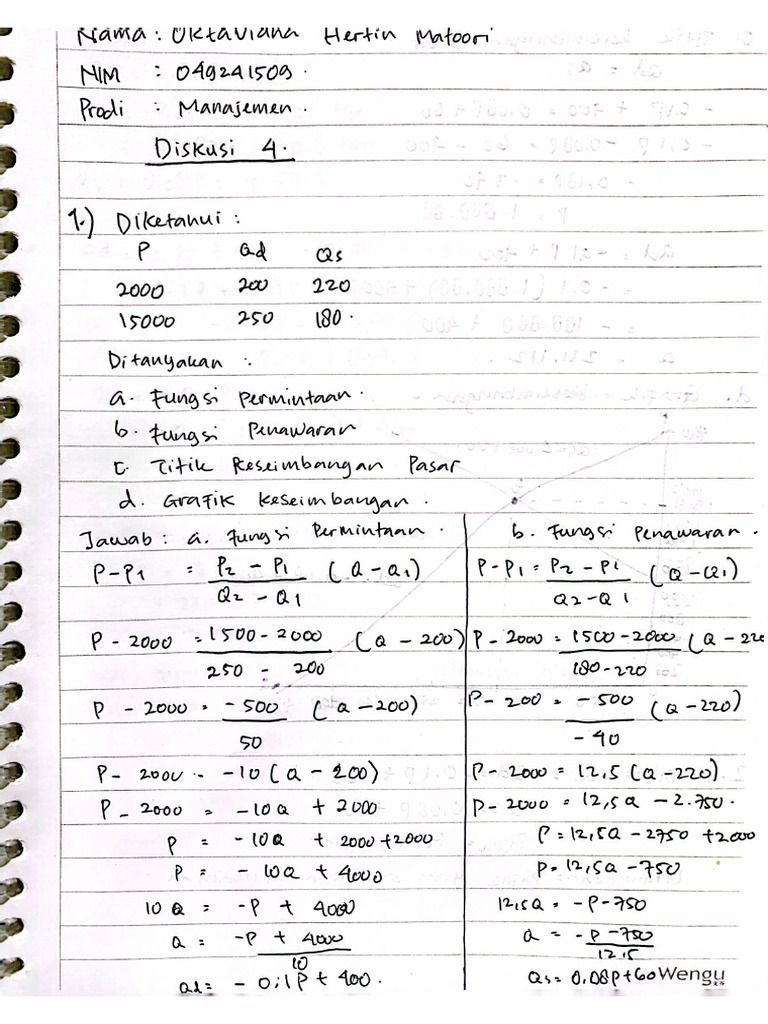 Nama : Oktaviana Hertin Matoori
NIM : 049241509.
Prodi : Manajemen.
Diskusi 4.
1.) Diketahui :
P Qd Qs
2000 200 220
15000 250 180.
Ditanyakan :
a. Fungsi Permintaan.
b. Fungsi Penawaran
c. Titik Keseimbangan Pasar
d. Grafik Keseimbangan.
Jawab : a. Fungsi Permintaan.
P - P1 = P2 - P1 (Q - Q1)
Q2 - Q1
P - 2000 = 1500 - 2000 (Q - 200)
250 - 200
P - 2000 = -500 (Q - 200)
50
P - 2000 = -10 (Q - 200)
P - 2000 = -10Q + 2000
P = -10Q + 2000 + 2000
P = -10Q + 4000
10Q = -P + 4000
Q = -P + 4000
10
Qd = -0,1P + 400.
b. Fungsi Penawaran.
P - P1 = P2 - P1 (Q - Q1)
Q2 - Q1
P - 2000 = 1500 - 2000 (Q - 220
180 - 220
P - 200 = -500 (Q - 220)
-40
P - 2000 = 12,5 (Q - 220)
P - 2000 = 12,5Q - 2.750.
P = 12,5Q - 2750 + 2000
P = 12,5Q - 750
12,5Q = -P - 750
Q = -P - 750
12,5
Qs = 0,08P + 60
Wengu